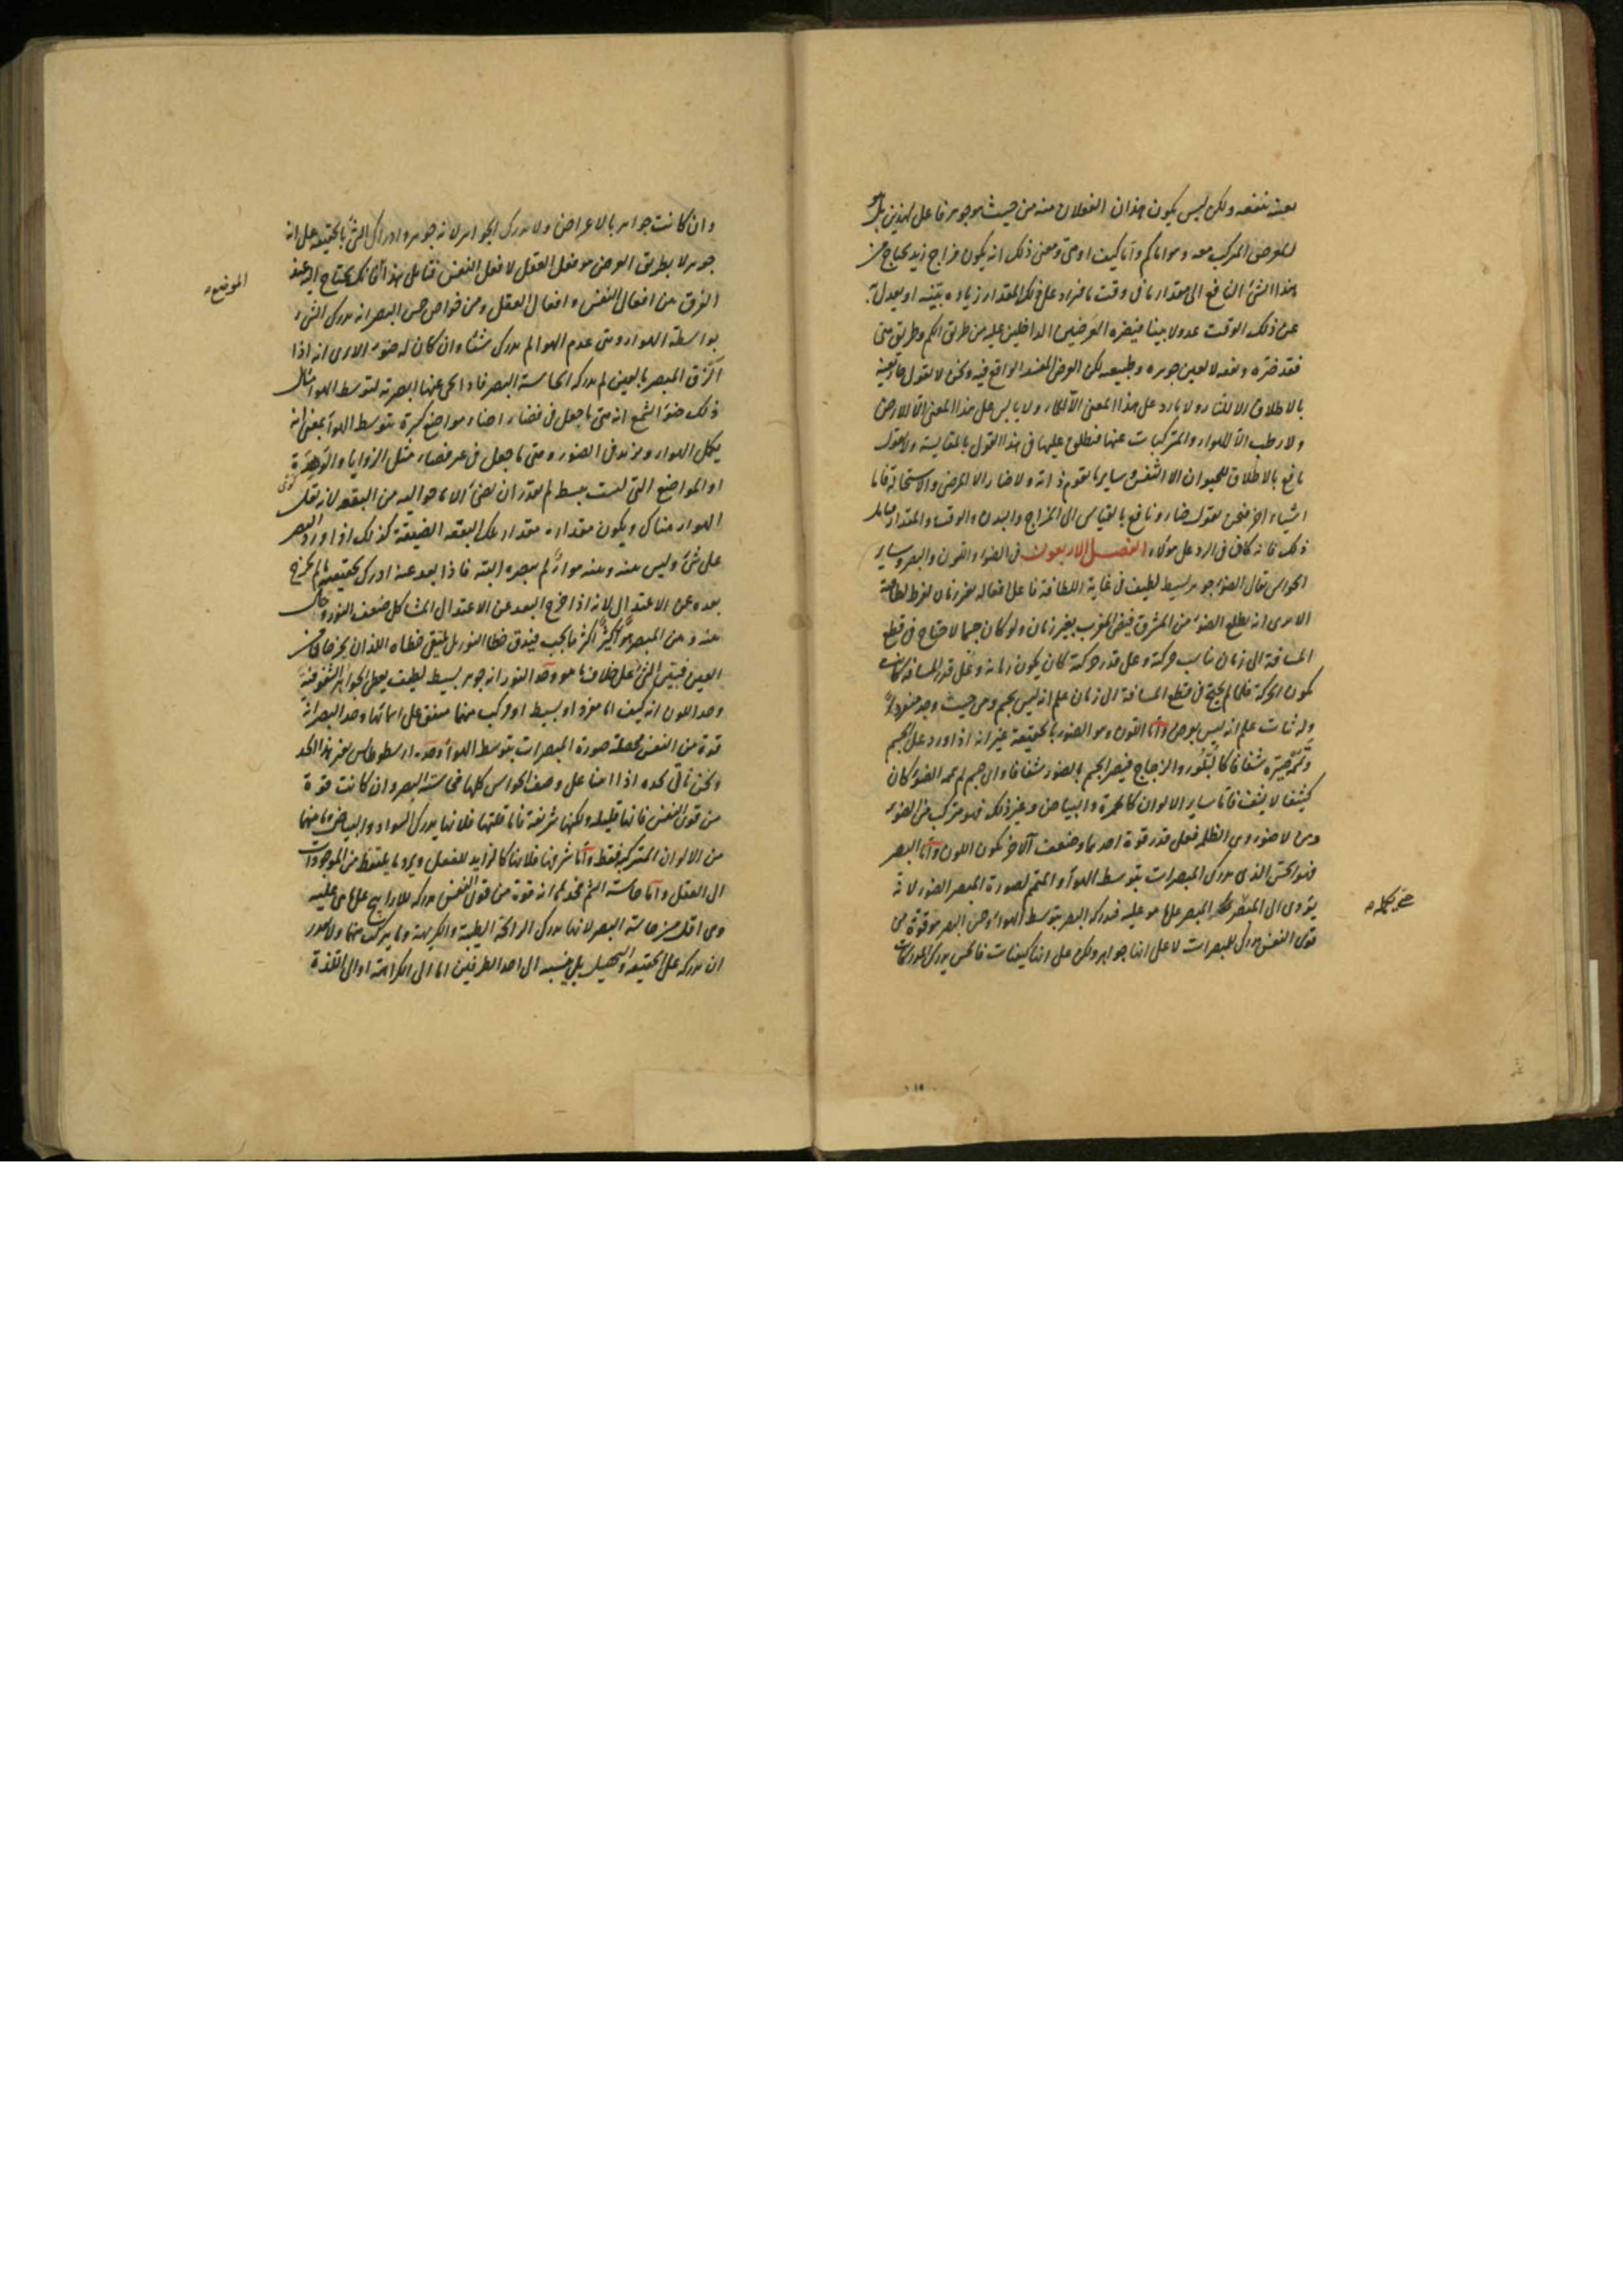 بعينه ينفعه ولكن ليس يكون هذان الفعلان منه من حيث هو جوهر فاعل لهذين بل هو
للعرض المركب معه وهو اما كم واما كيف او متى ومعنى ذلك انه يكون مزاج زيد يحتاج من
هذا الشئ النافع الى مقدار ما فى وقت ما فيزاد على ذلك المقدار زيادة بينة او يعدل به
عن ذلك الوقت عدولا بينا فيضره العرضين الداخلين عليه من طريق الكم وطريق متى
فقد ضره ونفعه لا بعين جوهره وطبيعته لكن العرض المفسد الواقع فيه ونحن لا نقول حار بعينه
بالاطلاق الا للنار ولا بارد على هذا المعنى الا للماء ولا يابس على هذا المعنى الا للارض
ولا رطب الا للهواء والمتركبات عنها فنطلق عليها فى هذا القول بالمقايسة ولا نقول
نافع بالاطلاق للحيوان الا النفس وساير ما يقوم ذاته ولا ضار الا المرض والاستحالة فاما
اشياء اخر فنحن نقول ضار ونافع بالقياس الى المزاج والبدن والوقت والمقدار
ذلك فانه كاف فى الرد على هؤلاء الفصل الاربعون فى الضوء واللون والبصر وساير
الحواس نقال الضوء جوهر بسيط لطيف فى غاية اللطافة فاعل افعاله بغير زمان لفرط لطافته
الا ترى انه يطلع الضوء من المشرق فيضئ المغرب بغير زمان ولو كان جسما لاحتاج فى قطع
المسافة الى زمان يناسب حركته وعلى قدر حركته كان يكون زمانه وعلى قدر المسافة كانت
تكون الحركة فلما لم يحتج فى قطع المسافة الى زمان علم انه ليس بجسم ومن حيث وجد منفردا
وله ثبات علم انه ليس بعرض واما اللون وهو الضوء بالحقيقة غير انه اذا ورد على الجسم
وتممه صيره شفافا كالبلور والزجاج فيصير الجسم بالضوء شفافا واى جسم لم يتممه الضوء كان
كثيفا لا يشف فاما ساير الالوان كالحمرة والبياض وغير ذلك فهو متركب من الضوء
ومن لا ضوء وهى الظلمة فعلى قدر قوة احدهما وضعف الاخر تكون اللون واما البصر
فهو الحس الذى يدرك المبصرات بتوسط الهواء والمتمم لصورة المبصر الضوء لانه
يؤدى الى البصر المبصر على ما هو عليه فيدركه البصر بتوسط الهواء وحس البصر هو قوة من
قوى النفس يدرك المبصرات لا على انها جواهر ولكن على انها كيفيات فالحس يدرك المدركات
وان كانت جواهر بالاعراض ولا يدرك الجواهر لانه جوهر وادراك الشئ بالحقيقة على انه
جوهر لا بطريق العرض هو فعل العقل لا فعل النفس فتامل هذا فانك تحتاج اليه عند
الموضع
الفرق بين افعال النفس وافعال العقل ومن خواص حس البصر انه يدرك الشئ
بواسطة الهواء ومتى عدم الهواء لم يدرك شيئا وان كان له ضوء الا ترى انه اذا
الزق المبصر بالعين لم يدركه الحاسة البصر فاذا نحى عنها ابصرته لتوسط الهواء مثال
ذلك ضوء الشمع انه متى ما جعل فى فضاء اضاء مواضع كثيرة بتوسط الهواء بمعنى انه
يكمل الهواء ويزيد فى الضوء ومتى ما جعل فى غير فضاء مثل الزوايا والوهدة
او المواضع التى ليست ببسط لم يقدر ان يضئ الا ما حواليه من البقعة لانه يقل
الهواء هناك ويكون مقداره مقدار تلك البقعة الضيقة كذلك اذا ورد البصر
على شئ وليس بينه وبينه هواء لم يبصره البتة فاذا بعد عنه ادرك بحقيقته ما لم يخرج
بعده عن الاعتدال لانه اذا خرج البعد عن الاعتدال المشاكل ضعف النور وحال
بينه وبين المبصر هواء كثير اكثر ما يجب فيفرق خطا النور بل يلتقى خطاه اللذان يخرجان من
العين فتبين الشئ على خلاف ما هو وحد النور انه جوهر بسيط لطيف يعطى الجواهر الشفوفية
وحد اللون انه كيف اما مفرد او بسيط او مركب منهما متفق على اسمائها وحد البصر انه
قوة من النفس محصلة صورة المبصرات بتوسط الهواء وحده ارسطوطاليس بغير هذا الحد
ونحن ناتى بحده اذا امعنا على وصف الحواس كلها فحاسة البصر وان كانت قوة
من قوى النفس فانها قليلة ولكنها شريفة فاما قلتها فلانها يدرك السواد والبياض وما بينهما
من الالوان المتركبة فقط واما شرفها فلانها كالرايد للفعل ويرد ما يلتقط من الموجودات
الى العقل واما حاسة الشم فحدها انه قوة من قوى النفس مدركة للاراييح على ما هى عليه
وهى اقل من حاسة البصر لانها يدرك الرائحة الطيبة والكريهة وما يتركب منهما ولا يقدر
ان يدركه على الحقيقة والتحصيل بل ينسبه الى احد الطرفين اما الى الكراهة او الى اللذة